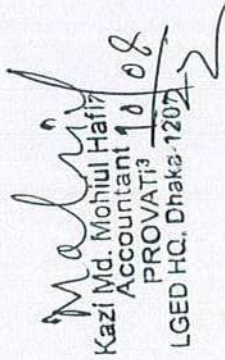 Kazi Md. Mohiul Hafiz
Accountant
PROVATi³
LGED HQ. Dhaka-1207